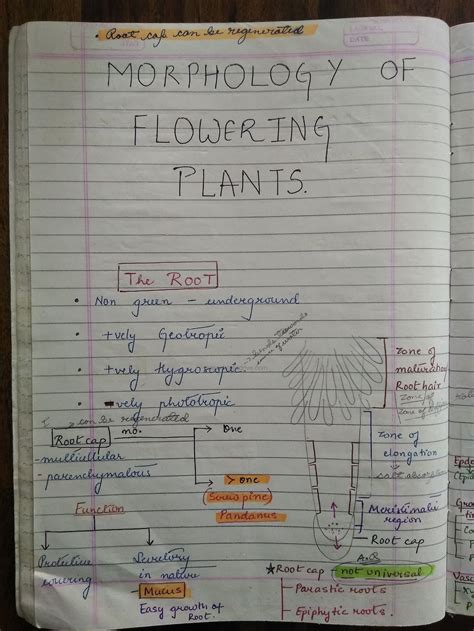 • Root cap can be regenerated
DATE
MORPHOLOGY OF
FLOWERING
PLANTS.
The Root
• Non green - underground
• +vely Geotropic
• +vely Hygroscopic
• -vely phototropic
can be regenerated
Root cap
no.
One
> one
(Screw pine)
Pandanus
- multicellular
- parenchymalous
Function
Protective covering
Secretory in nature
- Mucus
Easy growth of Root.
Zone of
maturation
Root hair
Zone of
elongation
Meristimatic
region
Root cap
★ Root cap - not universal
- Parastic roots
- Epiphytic roots.